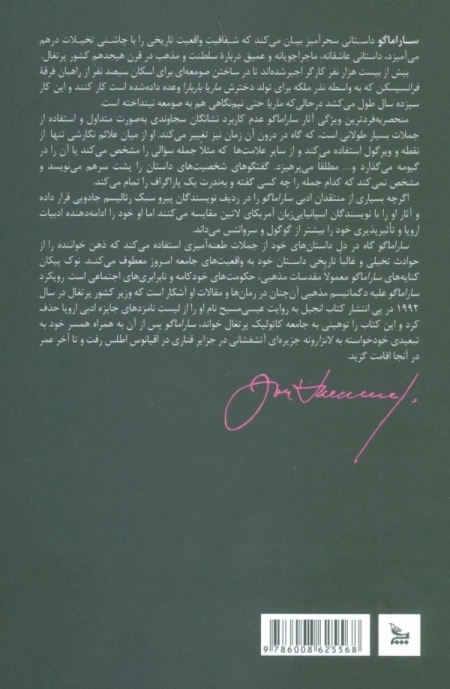 ســاراماگو داستانی سحرآمیز بیان می‌کند که شفافیت واقعیت تاریخی را با چاشنی تخیلات درهم
می‌آمیزد، داستانی عاشقانه، ماجراجویانه و عمیق دربارهٔ سلطنت و مذهب در قرن هیجدهم کشور پرتغال.
بیش از بیست هزار نفر کارگر اجیر شده‌اند تا در ساختن صومعه‌ای برای اسکان سیصد نفر از راهبان فرقهٔ
فرانسیسکن که به واسطهٔ نذر ملکه برای تولد دخترش ماریا باربارا وعده داده‌شده است کار کنند و این کار
سیزده سال طول می‌کشد درحالی‌که ماریا حتی نیم‌نگاهی هم به صومعه نینداخته است.
منحصربه‌فردترین ویژگی آثار ساراماگو عدم کاربرد نشانگان سجاوندی به‌صورت متداول و استفاده از
جملات بسیار طولانی است، که گاه در درون آن زمان نیز تغییر می‌کند. او از میان علائم نگارشی تنها از
نقطه و ویرگول استفاده می‌کند و از سایر علامت‌ها که مثلاً جمله سوالی را مشخص می‌کند یا آن را در
گیومه می‌گذارد و... مطلقاً می‌پرهیزد. گفتگوهای شخصیت‌های داستان را پشت سرهم می‌نویسد و
مشخص نمی‌کند که کدام جمله را چه کسی گفته و به‌ندرت یک پاراگراف را تمام می‌کند.
اگرچه بسیاری از منتقدان ادبی ساراماگو را در ردیف نویسندگان پیرو سبک رئالیسم جادویی قرار داده
و آثار او را با نویسندگان اسپانیایی‌زبان آمریکای لاتین مقایسه می‌کنند اما او خود را ادامه‌دهنده ادبیات
اروپا و تأثیرپذیری خود را بیشتر از گوگول و سروانتس می‌داند.
ساراماگو گاه در دل داستان‌های خود از جملات طعنه‌آمیزی استفاده می‌کند که ذهن خواننده را از
حوادث تخیلی و غالباً تاریخی داستان خود به واقعیت‌های جامعه امروز معطوف می‌کند. نوک پیکان
کنایه‌های ساراماگو معمولا مقدسات مذهبی، حکومت‌های خودکامه و نابرابری‌های اجتماعی است. رویکرد
ساراماگو علیه دگماتیسم مذهبی آن‌چنان در رمان‌ها و مقالات او آشکار است که وزیر کشور پرتغال در سال
۱۹۹۲ در پی انتشار کتاب انجیل به روایت عیسی‌مسیح نام او را از لیست نامزدهای جایزه ادبی اروپا حذف
کرد و این کتاب را توهینی به جامعه کاتولیک پرتغال خواند، ساراماگو پس از آن به همراه همسر خود به
تبعیدی خودخواسته به لانزاروته جزیره‌ای آتشفشانی در جزایر قناری در اقیانوس اطلس رفت و تا آخر عمر
در آنجا اقامت گزید.
9 786008 625568